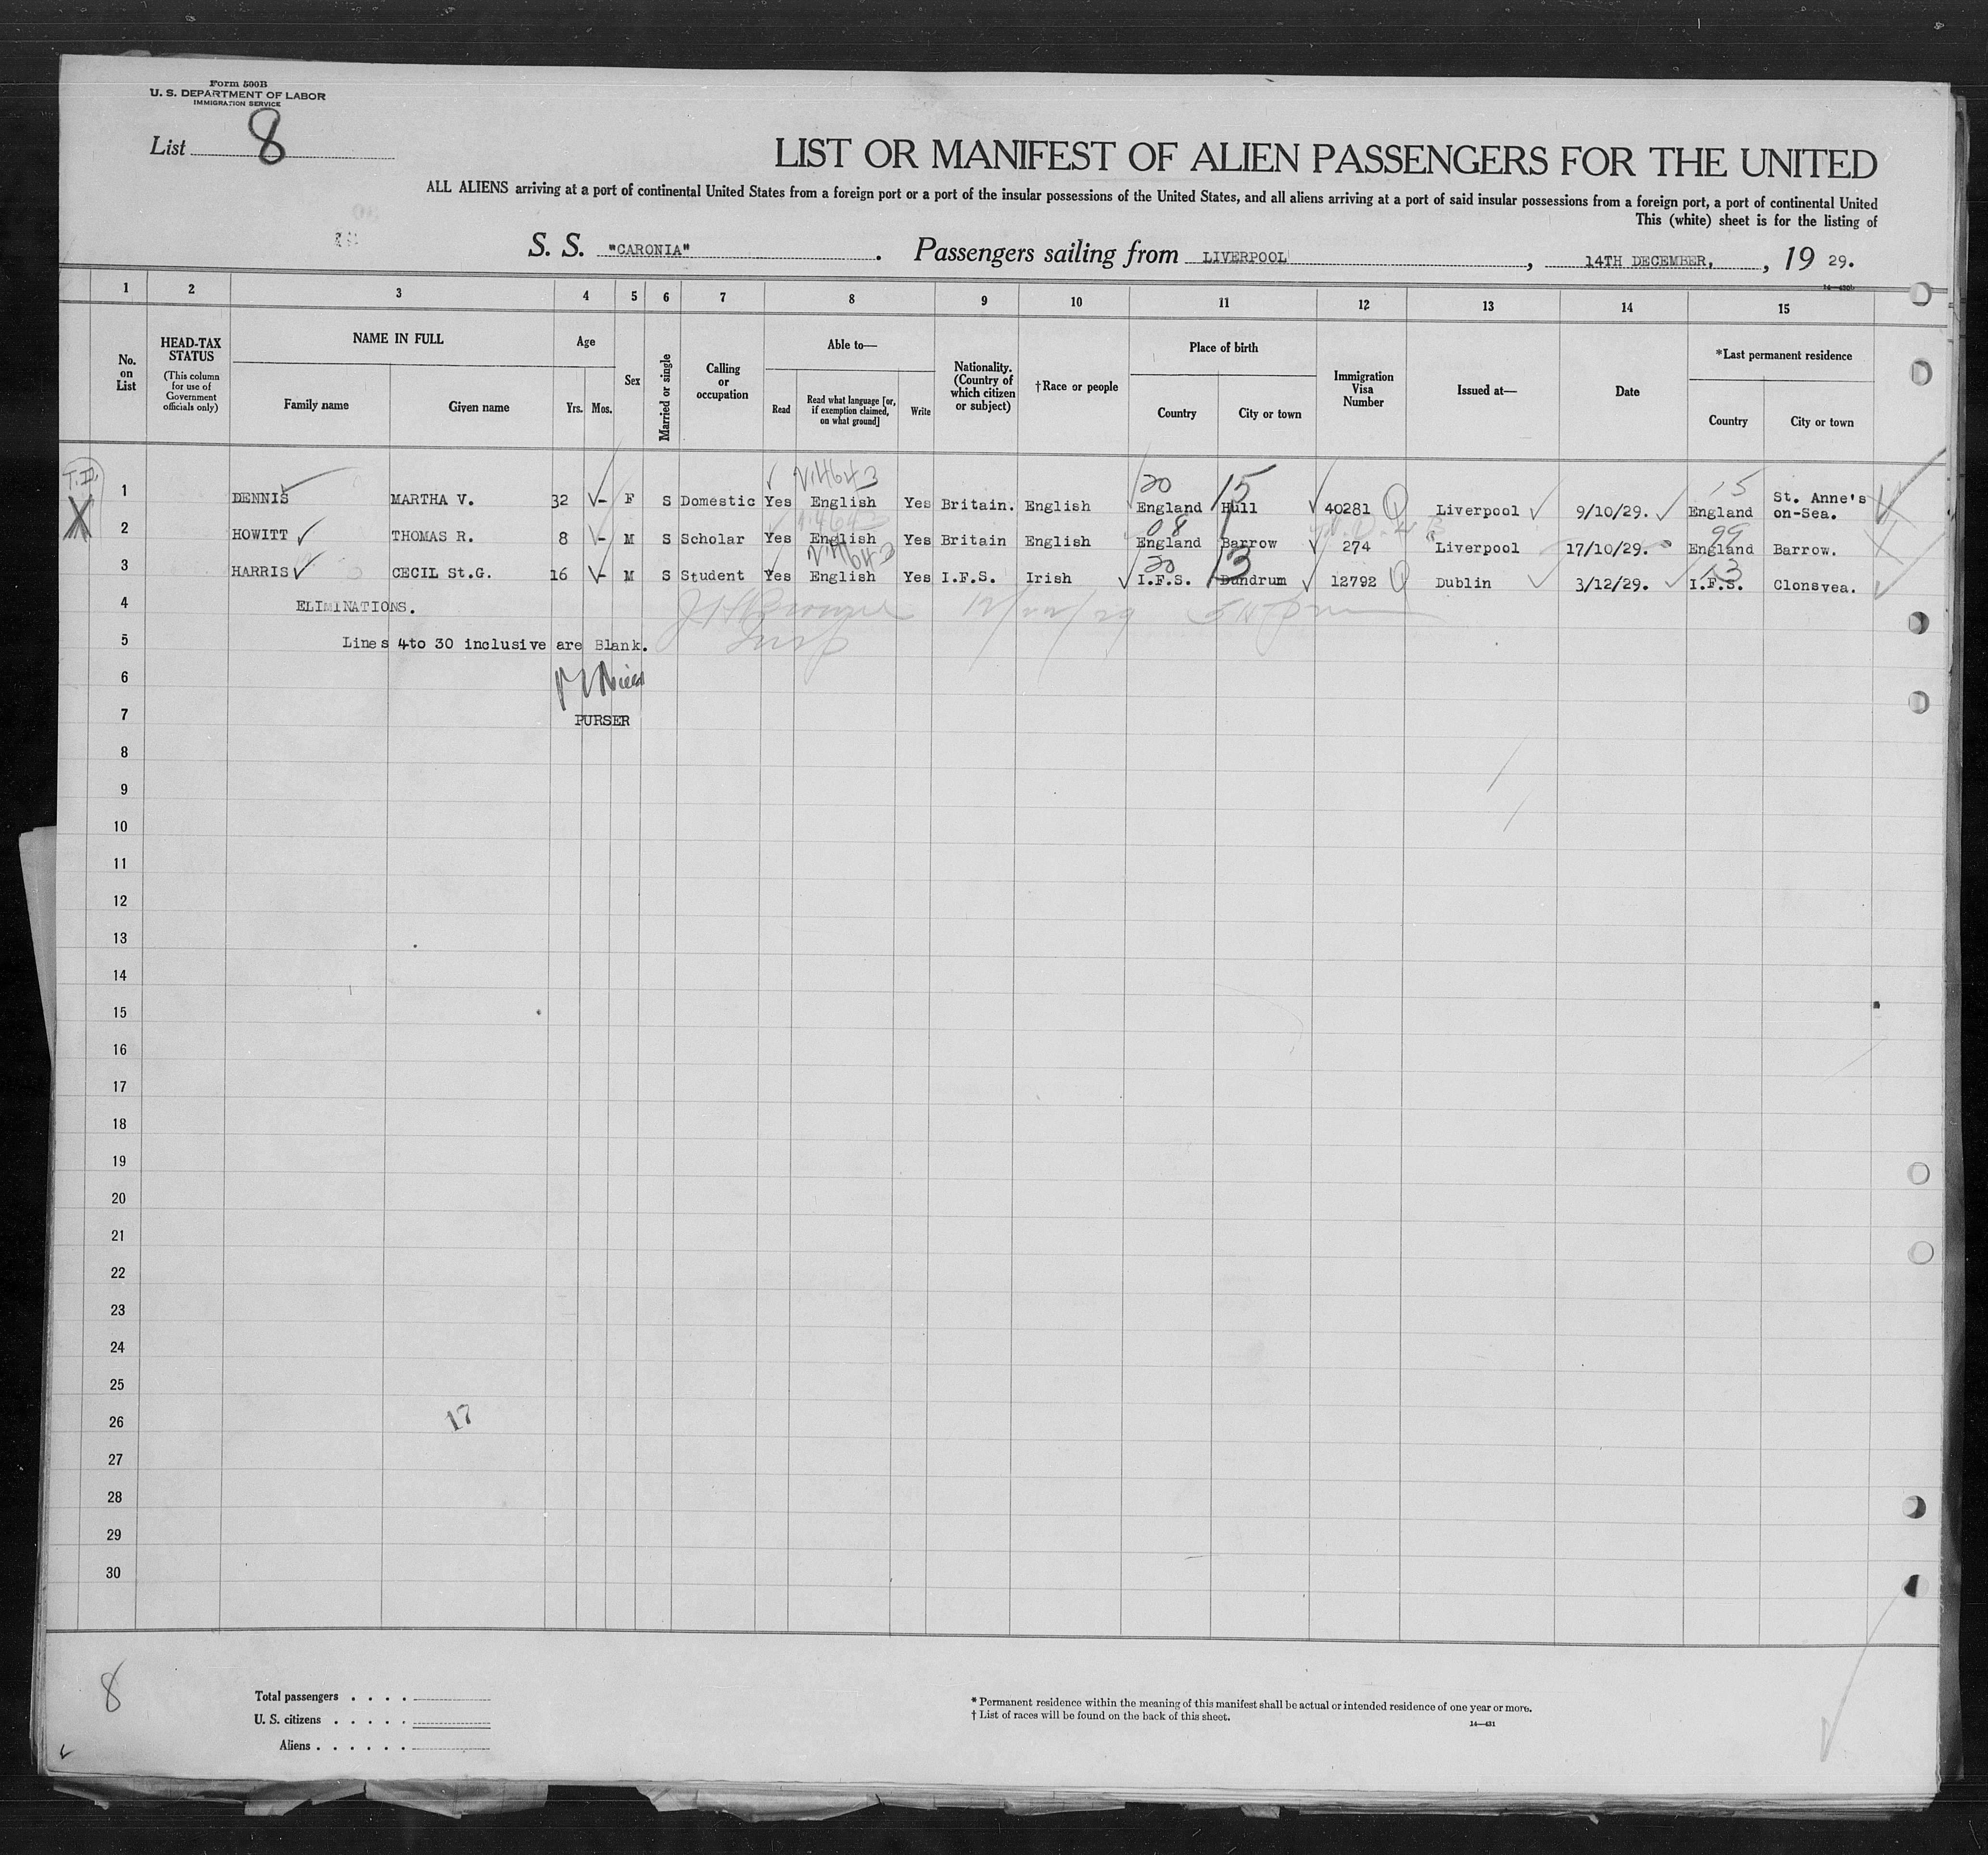 Form 500B
U. S. DEPARTMENT OF LABOR
IMMIGRATION SERVICE
List 8
LIST OR MANIFEST OF ALIEN PASSENGERS FOR THE UNITED
ALL ALIENS arriving at a port of continental United States from a foreign port or a port of the insular possessions of the United States, and all aliens arriving at a port of said insular possessions from a foreign port, a port of continental United
This (white) sheet is for the listing of
S. S. "CARONIA". Passengers sailing from LIVERPOOL, 14TH DECEMBER, , 19 29.
1 2 3 4 5 6 7 8 9 10 11 12 13 14 15
No. on List
HEAD-TAX STATUS
(This column for use of Government officials only)
NAME IN FULL
Family name Given name
Age
Yrs. Mos.
Sex
Married or single
Calling or occupation
Able to—
Read
Read what language [or, if exemption claimed, on what ground]
Write
Nationality. (Country of which citizen or subject)
†Race or people
Place of birth
Country City or town
Immigration Visa Number
Issued at—
Date
*Last permanent residence
Country City or town
1 DENNIS MARTHA V. 32 - F S Domestic Yes English Yes Britain. English England Hull 40281 Liverpool 9/10/29. England St. Anne's on-Sea.
2 HOWITT THOMAS R. 8 - M S Scholar Yes English Yes Britain English England Barrow 274 Liverpool 17/10/29. England Barrow.
3 HARRIS CECIL St.G. 16 - M S Student Yes English Yes I.F.S. Irish I.F.S. Dundrum 12792 Dublin 3/12/29. I.F.S. Clonsvea.
4 ELIMINATIONS.
5 Lines 4to 30 inclusive are Blank.
6
7 PURSER
8
9
10
11
12
13
14
15
16
17
18
19
20
21
22
23
24
25
26 17
27
28
29
30
8
Total passengers . . . .
U. S. citizens . . . . .
Aliens . . . . . .
* Permanent residence within the meaning of this manifest shall be actual or intended residence of one year or more.
† List of races will be found on the back of this sheet.
14—431